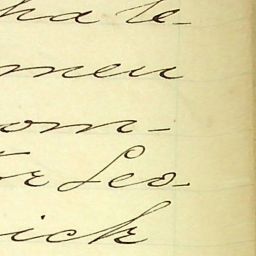 ha te-
men
om-
for Leo-
ick